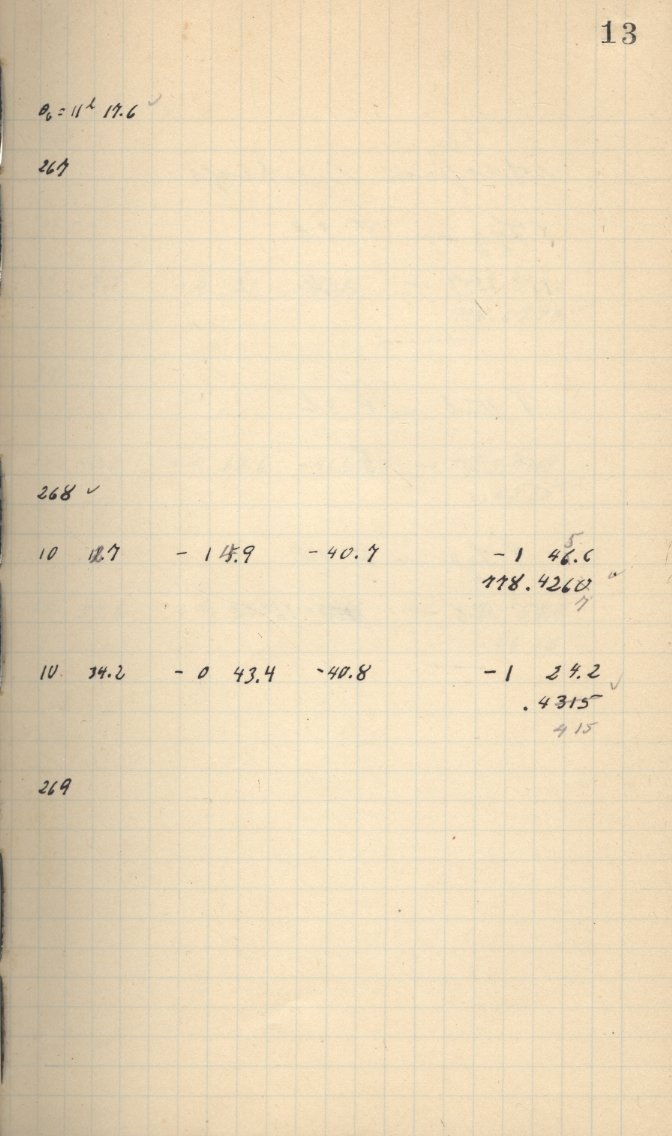 13
θ₀ = 11ʰ 17.6 ✓
267
268 ✓
10 127 - 1 45.9 - 40.7 - 1 46.6
5
778.4260 ✓
7
10 34.2 - 0 43.4 - 40.8 - 1 24.2
.4315 ✓
415
269